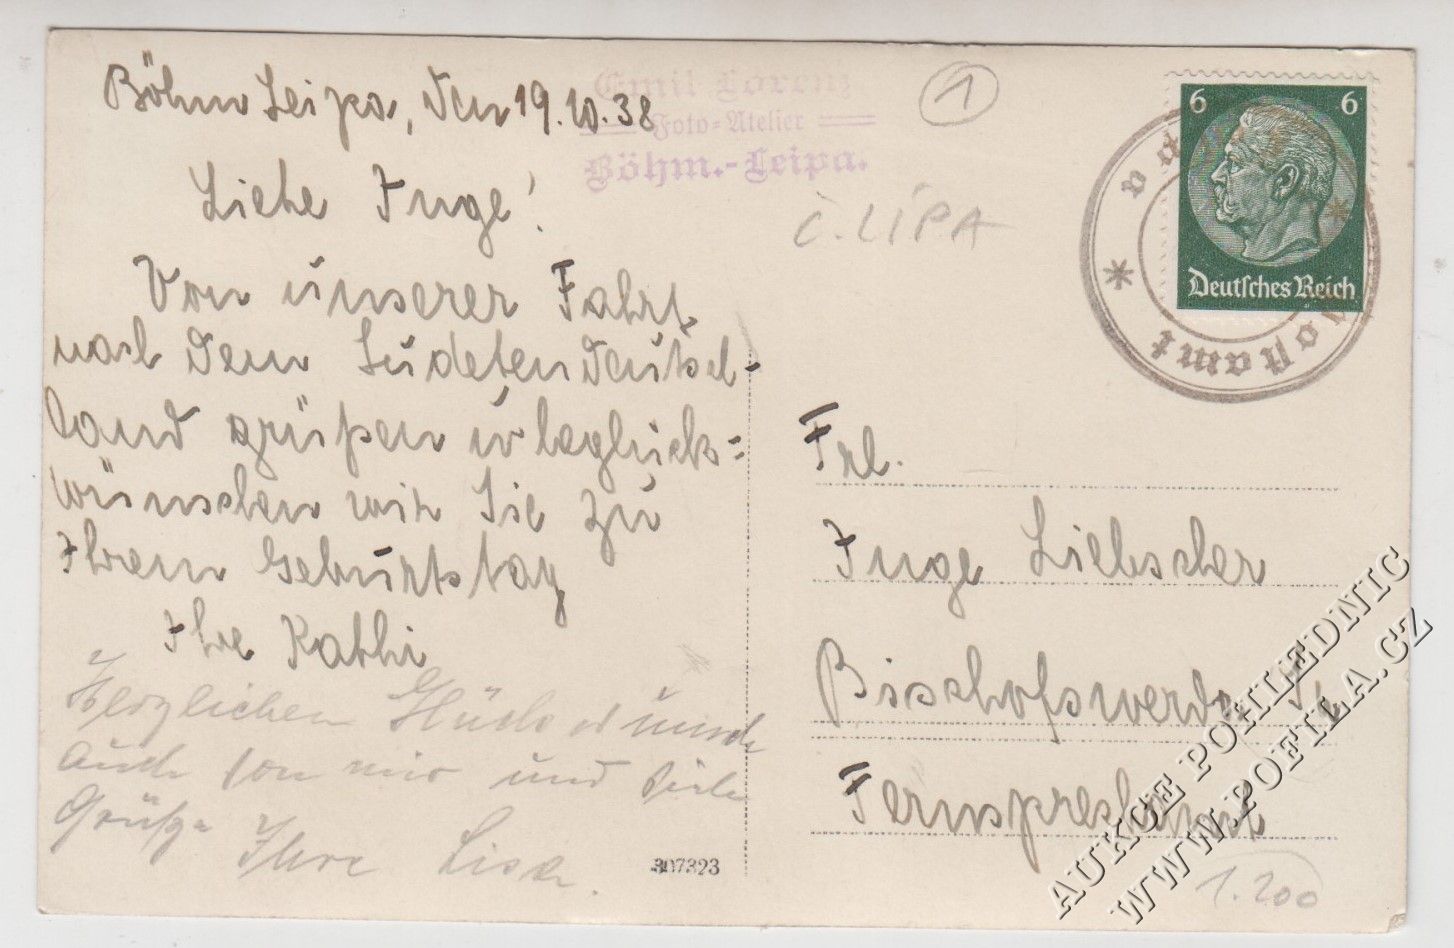 Böhm Leipa, den 19.10.38
Liebe Inge!
Von unserer Fahrt
nach dem Sudetendeutsch-
land grüßen u beglück-
wünschen wir Sie zu
Ihrem Geburtstag
Ihre Kathi
Herzlichen Glückwunsch
auch von mir und viele
Grüße Ihre Lisa.
307323
Emil Lorenz
Foto-Atelier
Böhm.-Leipa.
1
Č. LÍPA
6 6
Deutsches Reich
Postamt
Frl.
Inge Liebscher
Bischofswerda Sa
Fernsprechamt
1.200
AUKCE POHLEDNIC
WWW.POFILA.CZ